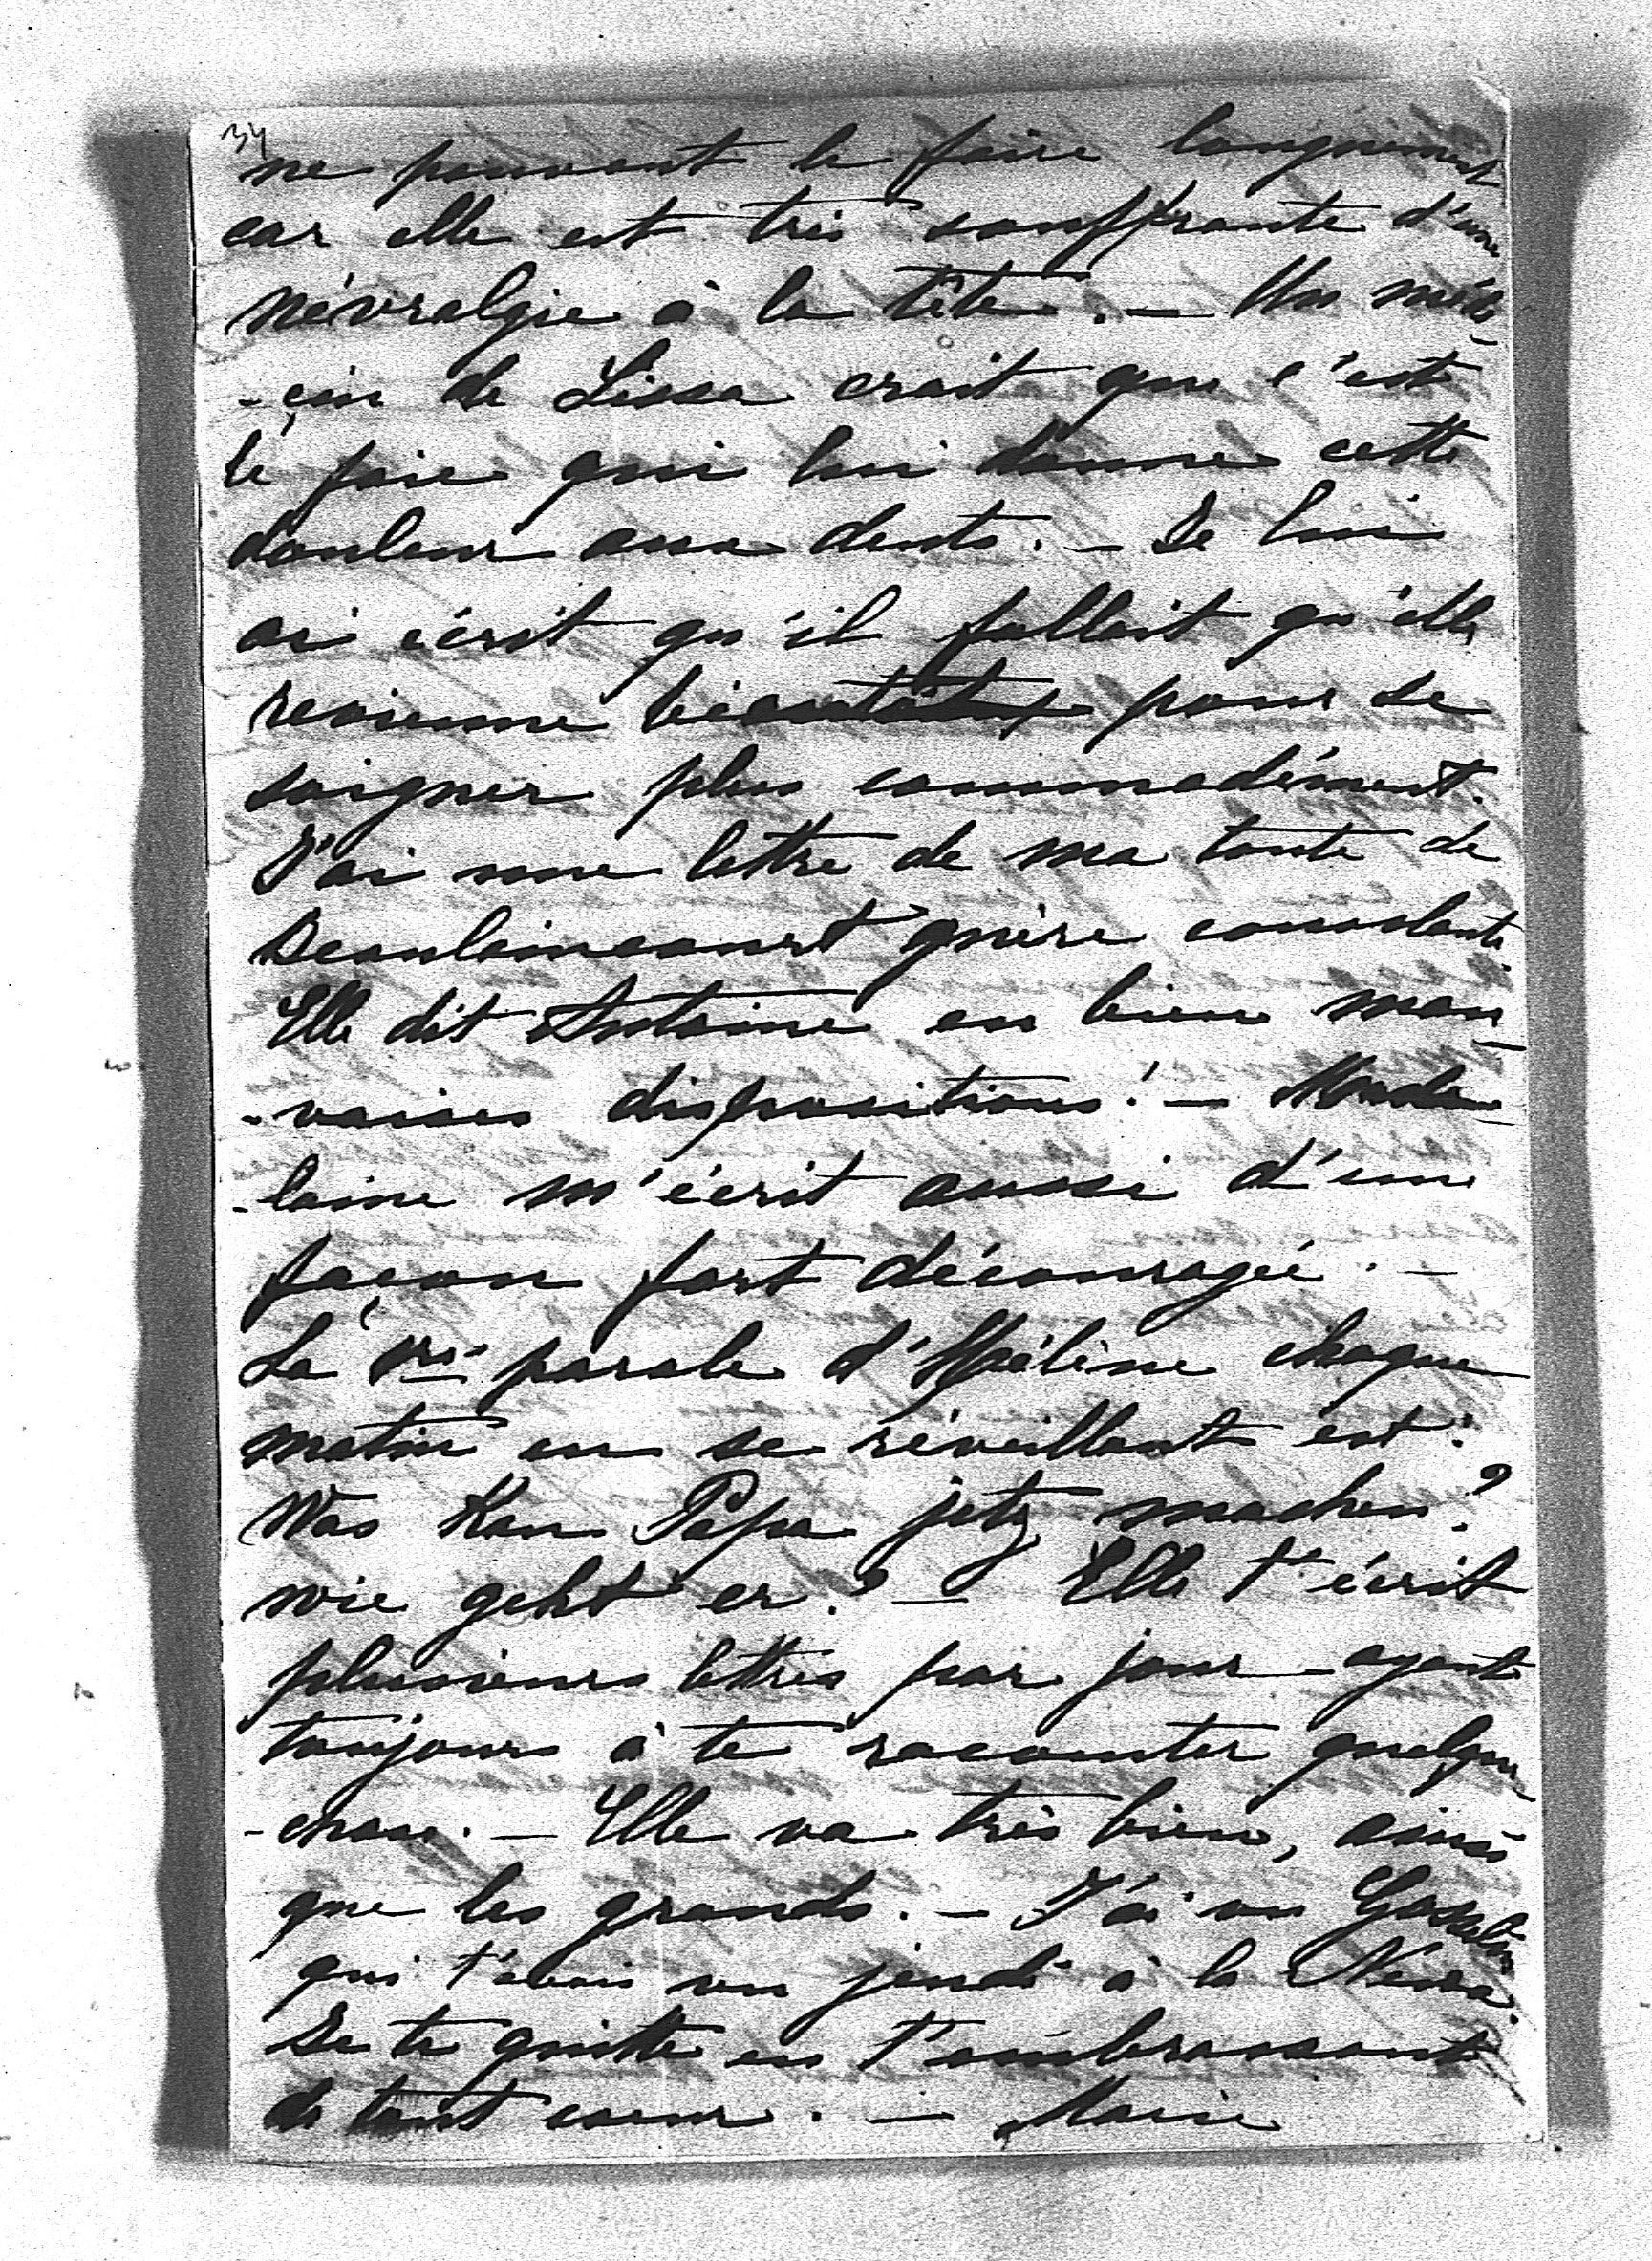 34
ne pouvant le faire longuement
car elle est très souffrante d'une
névralgie à la tête. — Un méde
-cin de Lissa croit que c'est
le foie qui lui donne cette
douleur aux dents. — Je lui
ai écrit qu'il fallait qu'elle
revienne pour se
soigner plus commodément.
J'ai une lettre de ma tante de
Beaulaincourt guère consolante
Elle dit Antoine en bien mau
-vaises dispositions! — Made
-laine m'écrit aussi d'une
façon fort découragée. —
La 1re parole d'Hélène chaque
matin en se réveillant est:
Was Kan Papa jetz machen?
wie geht er? — Elle t'écrit
plusieurs lettres par jour — ayant
toujours à te raconter quelque
-chose. — Elle va très bien, ainsi
que les grands. — J'ai vu Gosselin
qui t'avais vu jeudi à la Néva.
Je te quitte en t'embrassant
de tout coeur. — Marie